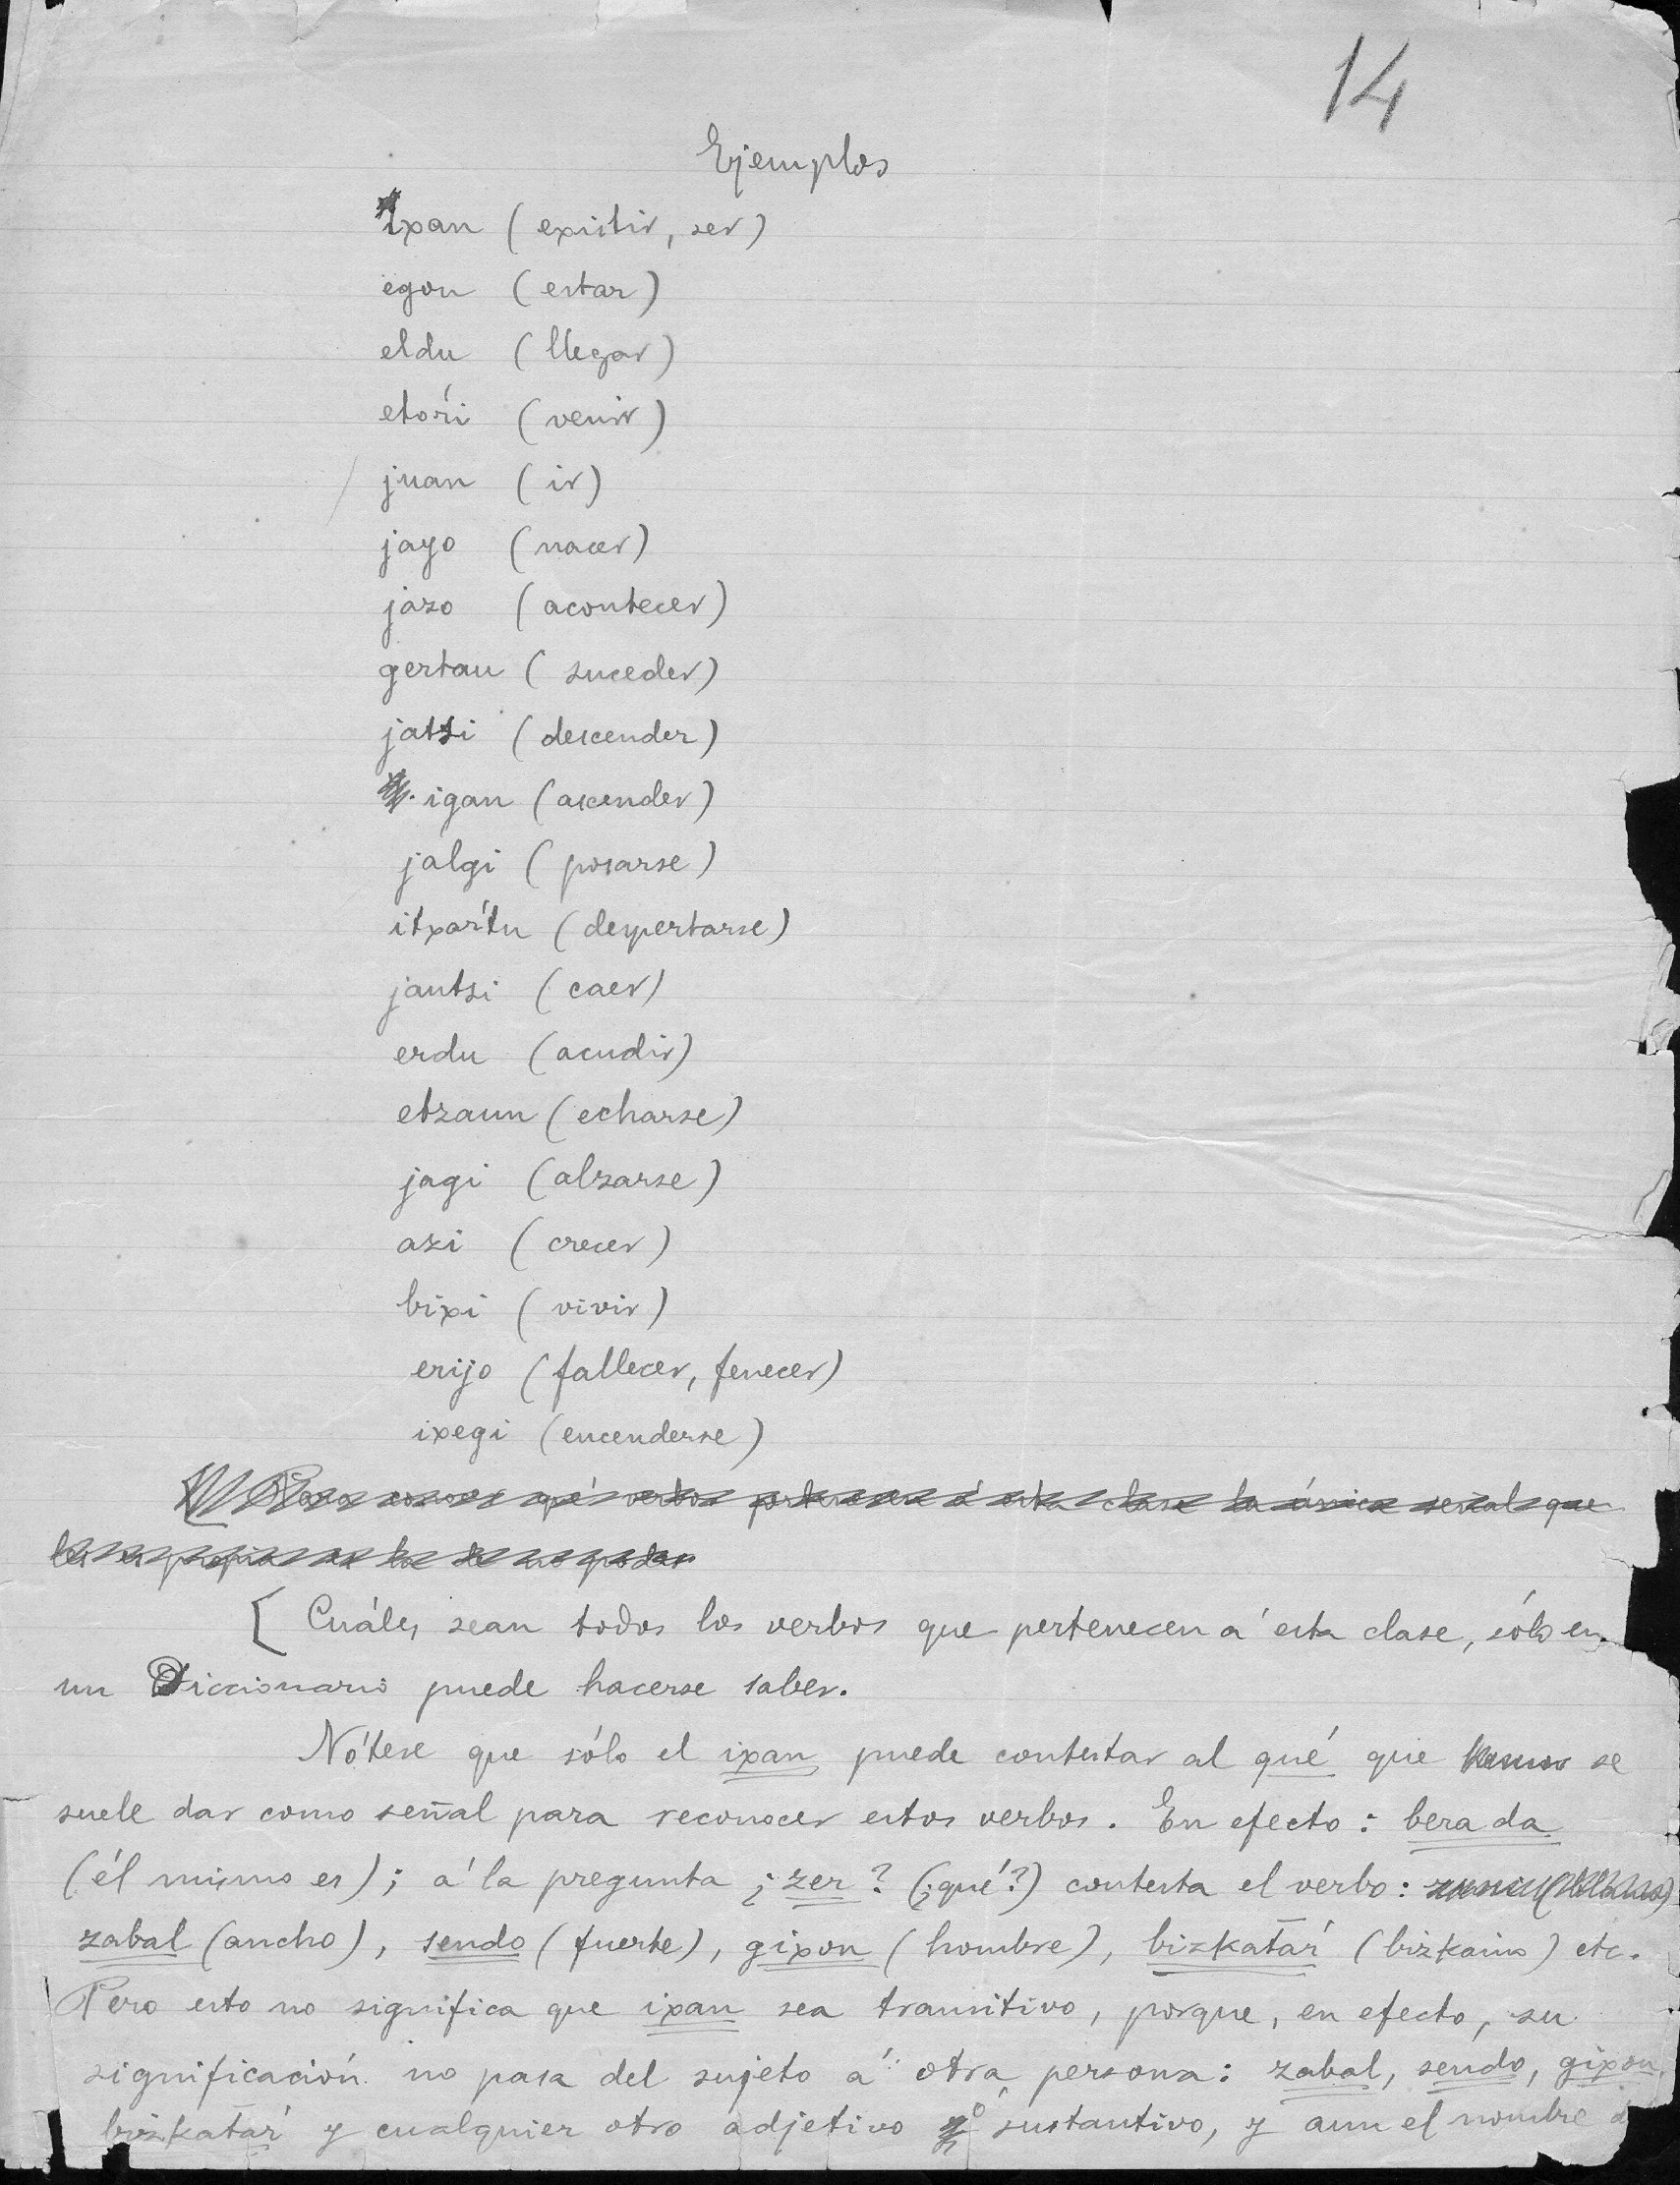 14
Ejemplos
ixan (existir, ser)
egon (estar)
eldu (llegar)
etoŕi (venir)
juan (ir)
jayo (nacer)
jazo (acontecer)
gertau (suceder)
jatsi (descender)
igan (ascender)
jalgi (posarse)
itxaŕtu (despertarse)
jautsi (caer)
erdu (acudir)
etzaun (echarse)
jagi (alzarse)
azi (crecer)
bixi (vivir)
erijo (fallecer, fenecer)
ixegi (encenderse)
Para conocer qué verbos pertenecen á esta clase la única señal que
les es propia es la de no poder
[ Cuáles sean todos los verbos que pertenecen á esta clase, sólo en
un Diccionario puede hacerse saber.
Nótese que sólo el ixan puede contestar al qué que se
suele dar como señal para reconocer estos verbos. En efecto: bera da
(él mismo es); á la pregunta ¿zer? (¿qué?) contesta el verbo:
zabal (ancho), sendo (fuerte), gixon (hombre), bizkat̄aŕ (bizkaino) etc.
Pero esto no significa que ixan sea transitivo, porque, en efecto, su
significación no pasa del sujeto á otra persona: zabal, sendo, gixon,
bizkat̄aŕ y cualquier otro adjetivo o sustantivo, y aun el nombre